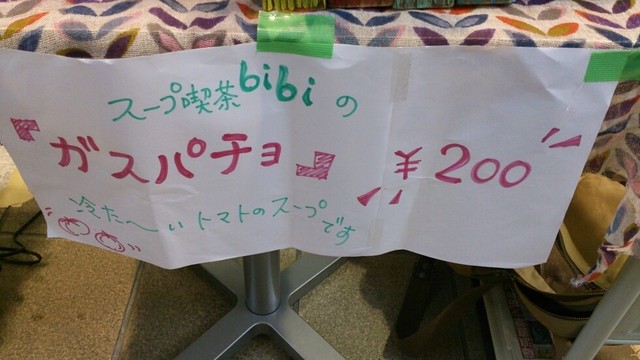 スープ喫茶bibiの
『ガスパチョ』 ¥200
冷た〜いトマトのスープ
です